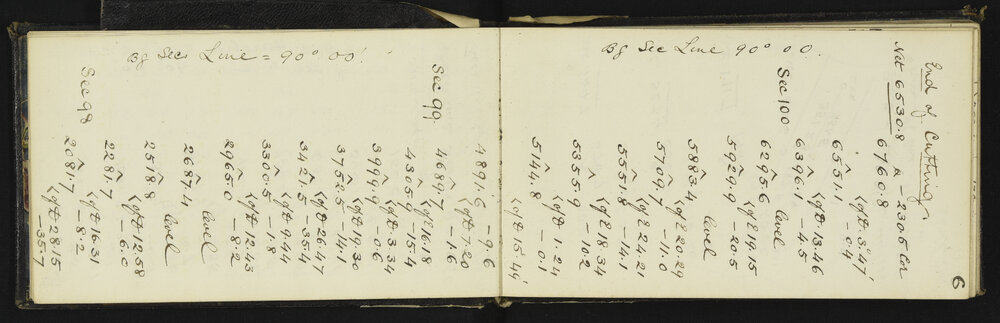 6
End of Cutting
Net 6530.8 & -230.5 Cor
6760.8
<of D 3°47' -0.4
6551.1
<of D 13.46 -4.5
6396.1
level
6295.6
Sec 100
<of E 19.15 -20.5
5929.9
level
5883.4
<of E 20.29 -11.0
5709.7
<of E 24.21 -14.1
5551.8
<of E 18.34 -10.2
5355.9
<of D 1.24 -0.1
5144.8
<of D 15.44'
Bg Sec Line 90° 00.
4891.6 -9.6
<of D 7.20 -1.6
4689.7
Sec 99
<of E 16.18 -15.4
4365.9
<of D 3.34 -0.6
3999.9
<of D 19.30 -14.1
3752.5
<of D 26.47 -35.4
3421.5
<of D 9.44 -1.8
3300.5
<of D 12.43 -8.2
2965.0
level
2687.4
level
2578.8
<of D 12.58 -6.0
2281.7
<of D 16.31 -8.2
2081.7
Sec 98
<of D 28.15 -35.7
Bg Sec Line = 90° 00'.